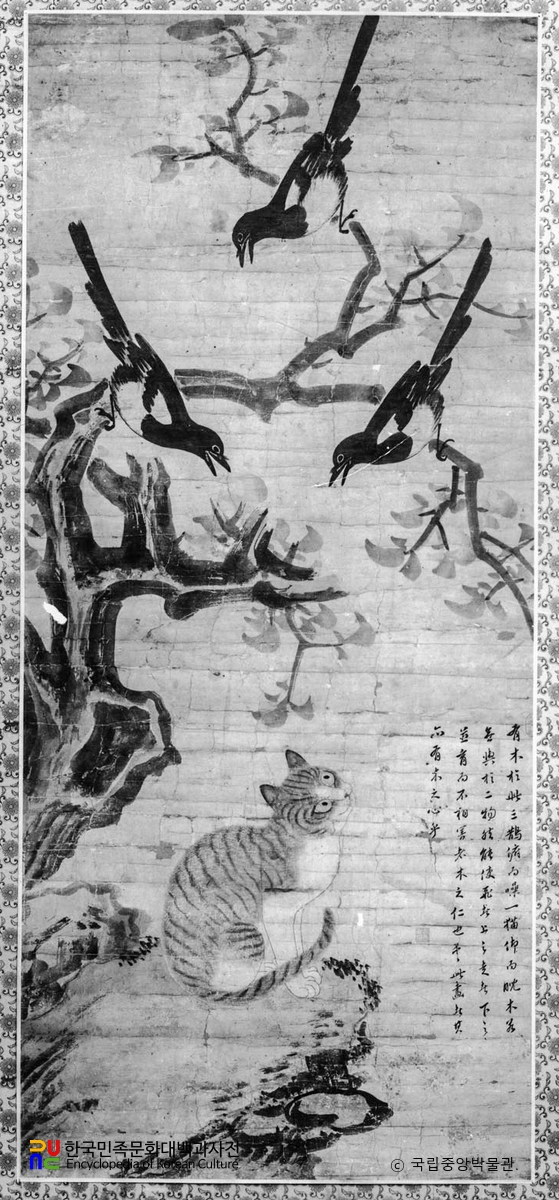 有木於此三鵲俯而噪一猫仰而眈木若
無與於二物然能使飛者上之走者下之
並育而不相害者木之仁也此畫者其
亦有木之心乎
한국민족문화대백과사전
Encyclopedia of Korean Culture
© 국립중앙박물관.